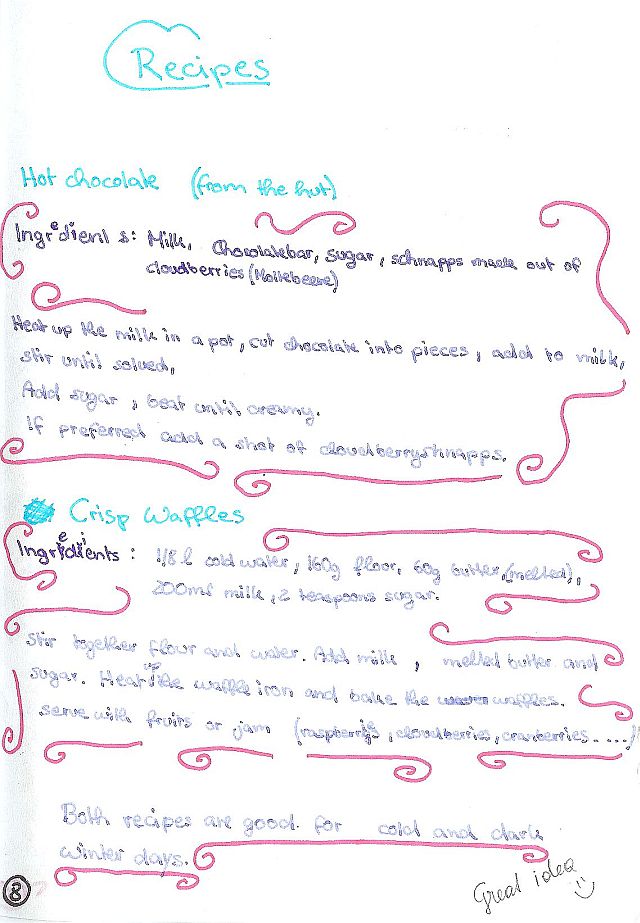 Recipes
Hot chocolate (from the hut)
Ingredients: Milk, Chocolatebar, sugar, schnapps made out of
cloudberries (Moltebeere)
Heat up the milk in a pot, cut chocolate into pieces, add to milk,
stir until solved,
Add sugar, beat until creamy.
If preferred add a shot of cloudberryschnapps.
Crisp Waffles
Ingredients: 1/8 l cold water, 160g floor, 60g butter, (melted),
200ml milk, 2 teaspoons sugar.
Stir together flour and water. Add milk, melted butter and
sugar. Heat up the waffle iron and bake the waffles.
serve with fruits or jam (raspberries, cloudberries, cranberries....)
Both recipes are good for cold and dark
winter days.
Great idea :)
8